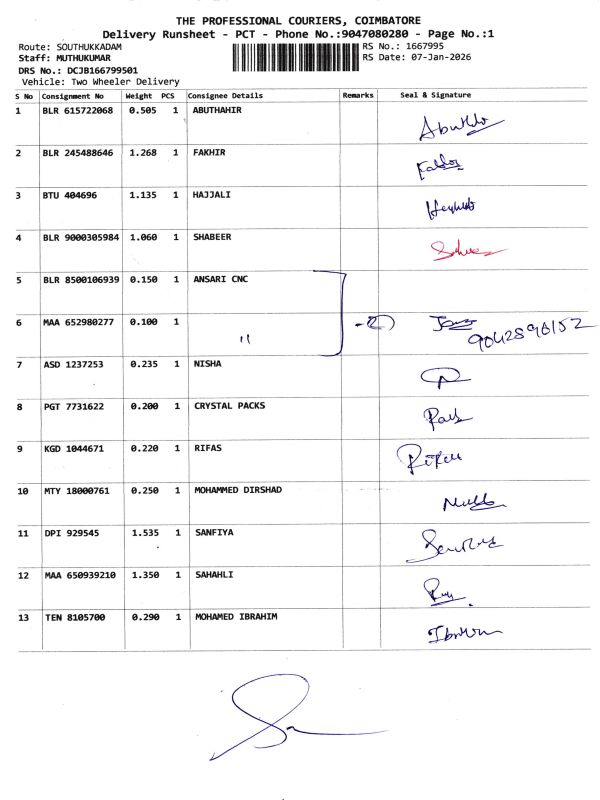 THE PROFESSIONAL COURIERS, COIMBATORE
Delivery Runsheet - PCT - Phone No.:9047080280 - Page No.:1
Route: SOUTHUKKADAM RS No.: 1667995
Staff: MUTHUKUMAR RS Date: 07-Jan-2026
DRS No.: DCJB166799501
Vehicle: Two Wheeler Delivery
S No Consignment No Weight PCS Consignee Details Remarks Seal & Signature
1 BLR 615722068 0.505 1 ABUTHAHIR
2 BLR 245488646 1.268 1 FAKHIR
3 BTU 404696 1.135 1 HAJJALI
4 BLR 9000305984 1.060 1 SHABEER
5 BLR 8500106939 0.150 1 ANSARI CNC
6 MAA 652980277 0.100 1 " -2
9042890152
7 ASD 1237253 0.235 1 NISHA
8 PGT 7731622 0.200 1 CRYSTAL PACKS
9 KGD 1044671 0.220 1 RIFAS
10 MTY 18000761 0.250 1 MOHAMMED DIRSHAD
11 DPI 929545 1.535 1 SANFIYA
12 MAA 650939210 1.350 1 SAHAHLI
13 TEN 8105700 0.290 1 MOHAMED IBRAHIM